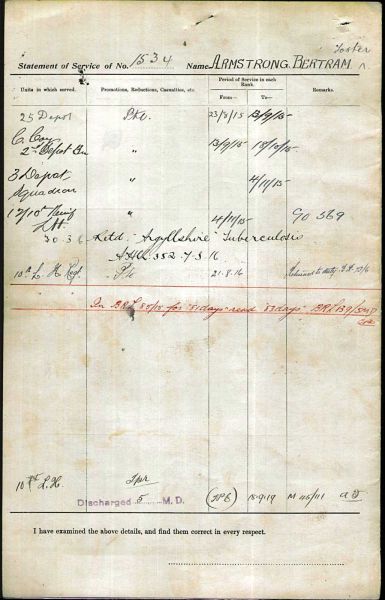 Foster
Statement of Service of No. 1534 Name ARMSTRONG. BERTRAM ^
Units in which served.
Promotions, Reductions, Casualties, etc.
Period of Service in each Rank.
From—
To—
Remarks.
25 Depot Pte. 23/8/15 13/9/15
C. Coy
2nd Depot Bn " 13/9/15 18/10/15
3 Depot
Squadron " 4/11/15
12/10th
L.H. " 4/11/15 90 569
30.3.16 Retd. Argyllshire Tuberculosis
352. 7.3.16
10th L. H. Regt. Pte 21.8.16 Returned to duty
In BRL 85/15 for "81 days" read "83 days" BRL 139/
10th L.H. Tpr
Discharged 5 M.D. (TPE) 18-9-19 M 46/111
I have examined the above details, and find them correct in every respect.